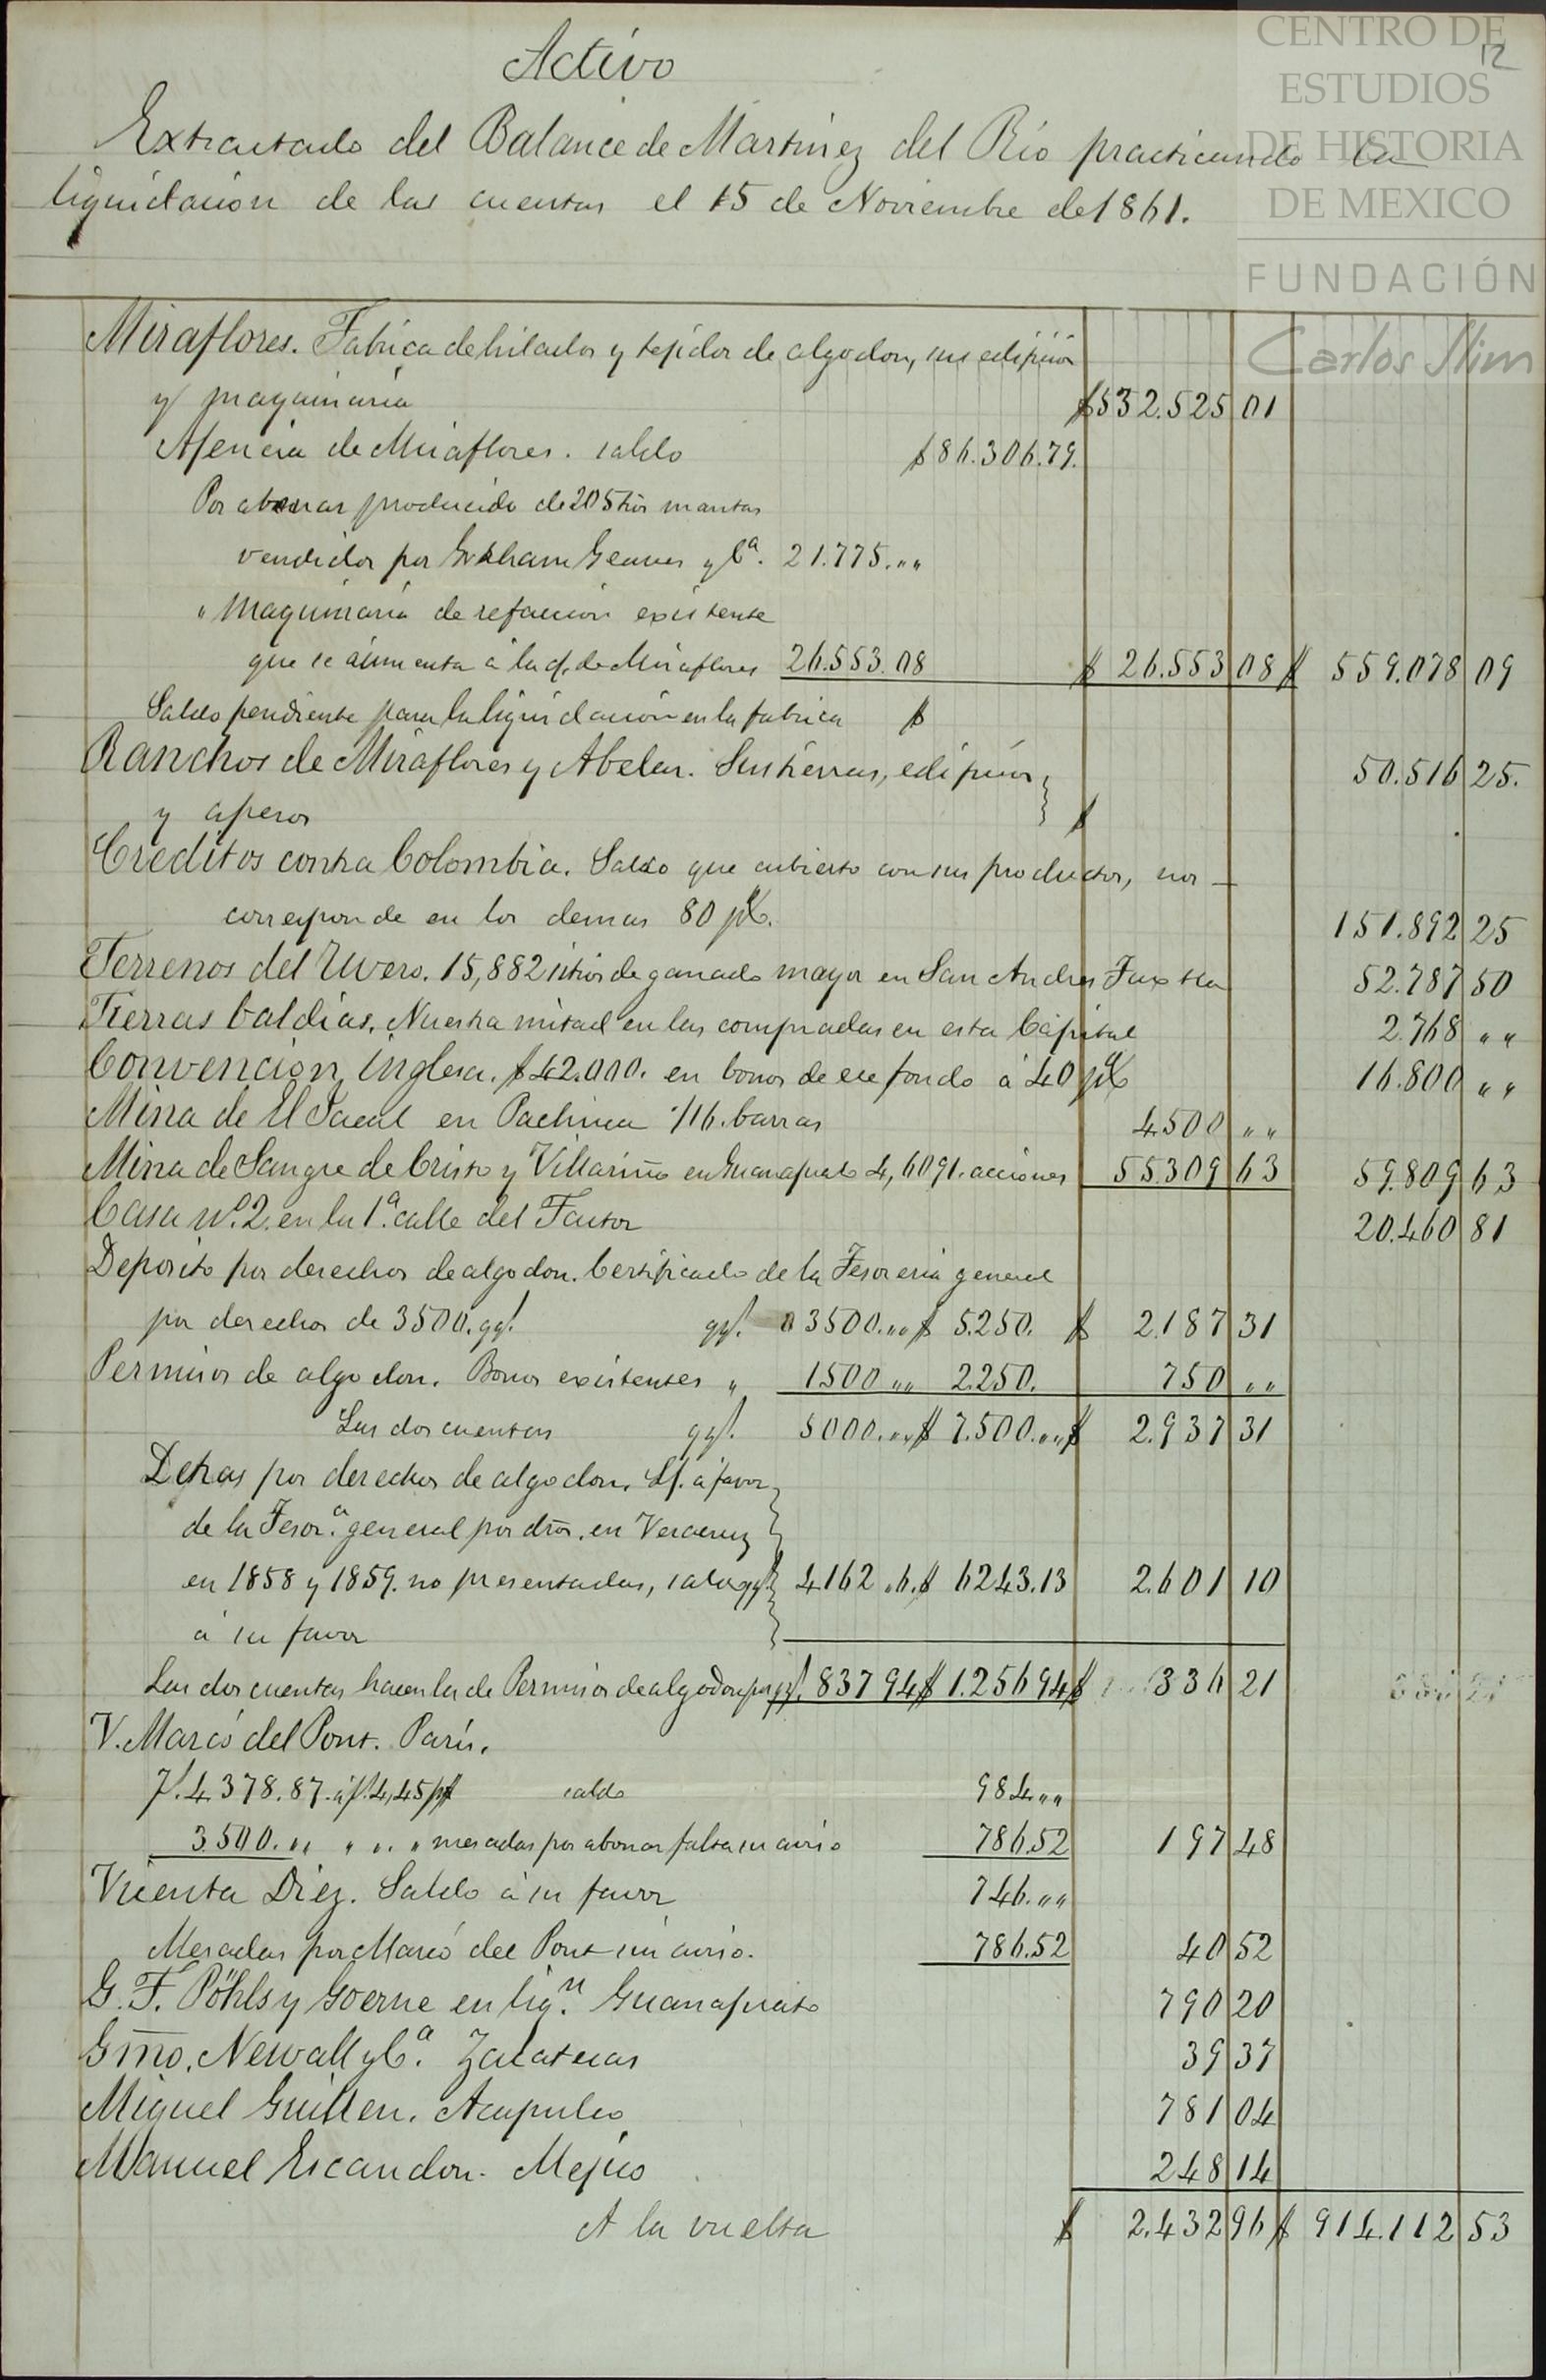 CENTRO DE
ESTUDIOS
DE HISTORIA
DE MEXICO
FUNDACIÓN
Carlos Slim
12
Activo
Extractado del Balance de Martinez del Rio practicando la
liquidacion de las cuentas el 15 de Noviembre de 1861.
Miraflores. Fabrica de hilados y tejidos de algodon, sus edificios
y maquinaria $532.525 01
Agencia de Miraflores. saldo $86.306.79.
Por abonar producido de 205 tros mantas
vendidos por Graham Geaves y Cª. 21.775.,,
" Maquinaria de refaccion existente
que se aumenta á la cf. de Miraflores 26.553.08 $ 26.553 08 $ 559.078 09
Saldo pendiente para la liquidacion en la fabrica $
Ranchos de Miraflores y Abelar. Sus tierras, edificios 50.516 25.
y aperos $
Creditos contra Colombia. Saldo que cubierto con sus productos, nos
corresponde en los demas 80 p%. 151.892 25
Terrenos del Uvero. 15,882 sitios de ganado mayor en San Andres Tuxtla 52.787 50
Tierras baldias. Nuestra mitad en las compradas en esta Capital 2.768 ,,
Convencion inglesa. $42.000. en bonos de ese fondo á 40 p% 16.800 ,,
Mina de El Jacal en Pachuca 1/16. barras 4.500 ,,
Mina de Sangre de Cristo y Villariño en Guanajuato 4,6091. acciones 55.309 63 59.809 63
Casa Nº. 2. en la 1ª. calle del Factor 20.460 81
Deposito por derechos de algodon. Certificado de la Tesoreria general
por derechos de 3500. qq. qq. 3500.,, $ 5.250. $ 2.187 31
Permisos de algodon. Bonos existentes " 1500 ,, 2.250. 750 ,,
Las dos cuentas qq. 5000.,, $ 7.500.,, $ 2.937 31
Letras por derechos de algodon. Lf. á favor
de la Tesorª. general por dros. en Veracruz
en 1858 y 1859. no presentadas, saldo qq. 4162 .6. $ 6243.13 2.601 10
á su favor
Las dos cuentas hacen la de Permisos de algodon por qq. 837 94 $ 1.256 94 $ 336 21
V. Marcó del Pont. Paris.
f. 4.378.87. á f. 4,45 p$ saldo 984.,,
3.500.,, " ". " mesadas por abonar falta su aviso 786.52 197 48
Vicenta Diez. Saldo á su favor 746.,,
Mesadas por Marcó del Pont sin aviso. 786.52 40 52
G. F. Pöhls y Goerne en liqn. Guanajuato 790 20
Gmo. Newall y Cª. Zacatecas 39 37
Miguel Guillen. Acapulco 781 04
Manuel Escandon. Mejico 248 14
A la vuelta $ 2.432 96 $ 914.112 53